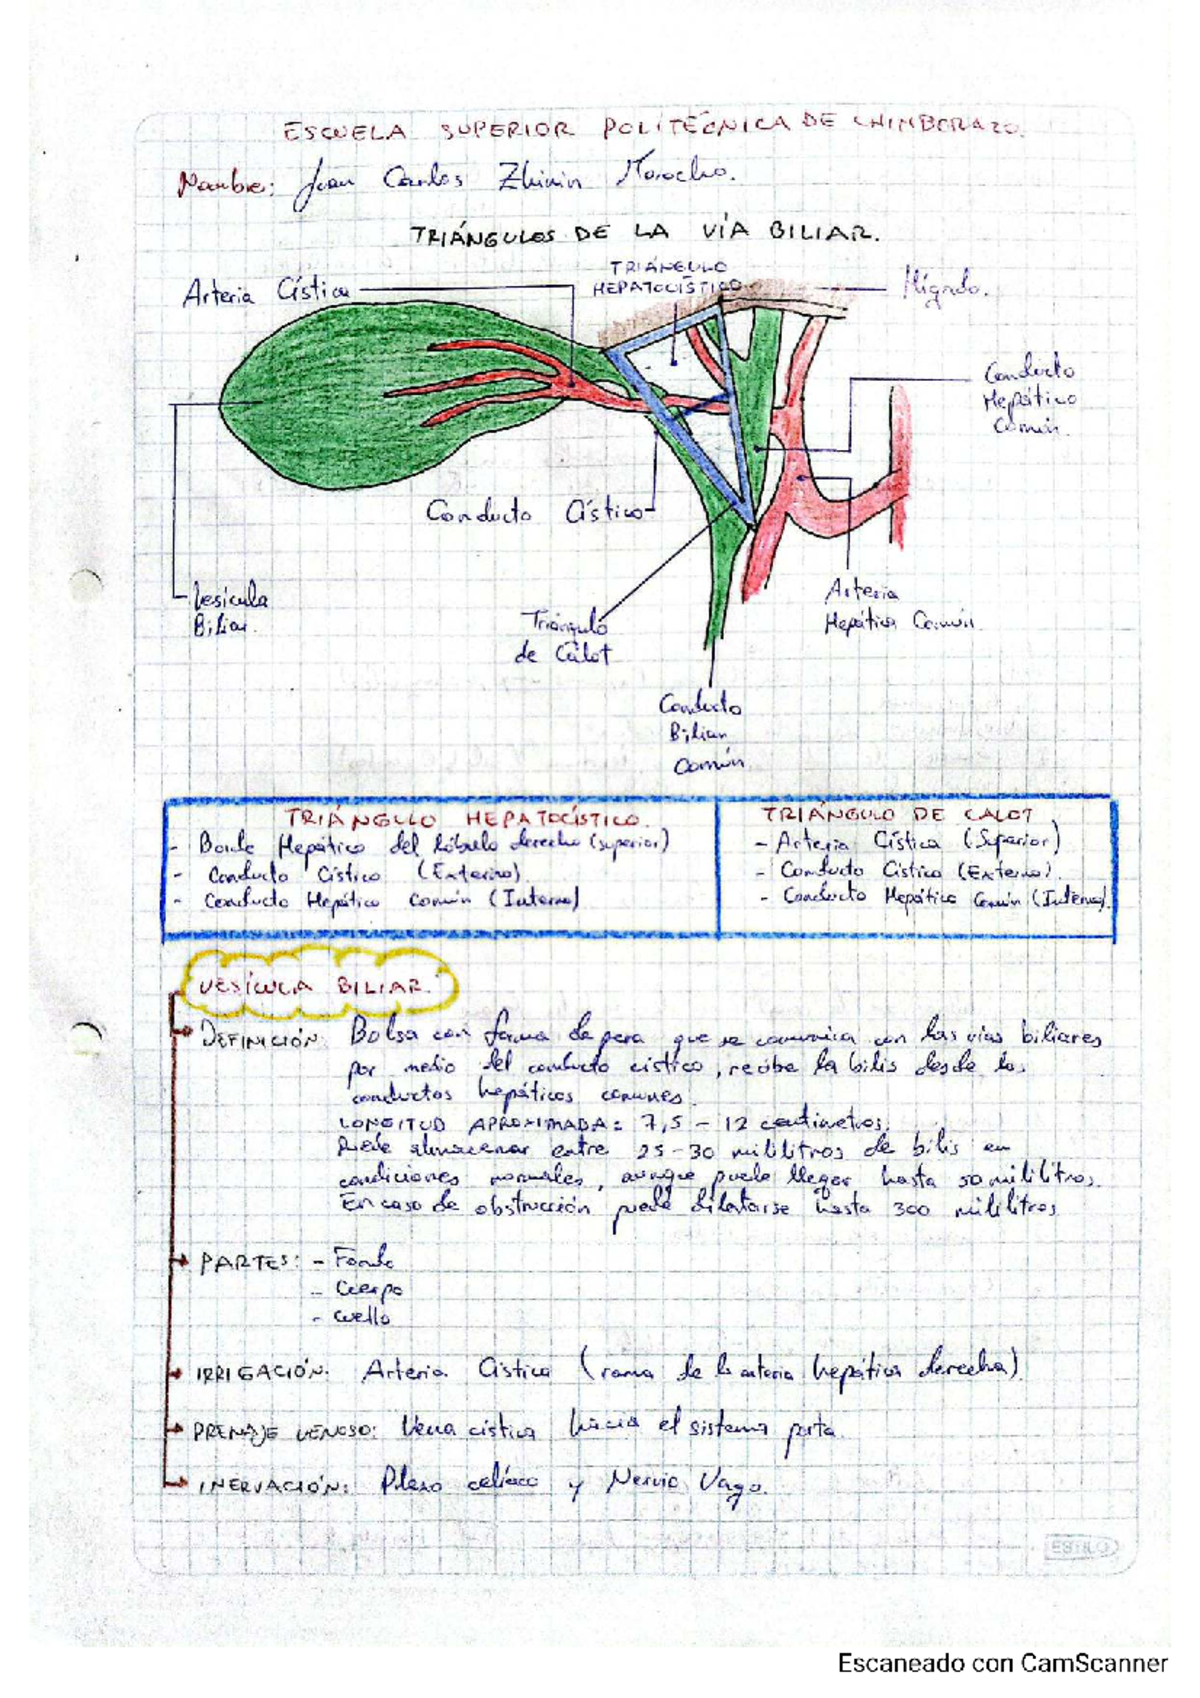 ESCUELA SUPERIOR POLITÉCNICA DE CHIMBORAZO.
Nombre: Juan Carlos Zhinin Morocho.
TRIÁNGULOS DE LA VÍA BILIAR.
TRIÁNGULO
HEPATOCÍSTICO
Arteria Cística
Hígado.
Conducto
Hepático
Común.
Conducto Cístico
Vesícula
Biliar.
Triángulo
de Calot
Arteria
Hepática Común.
Conducto
Biliar
Común
TRIÁNGULO HEPATOCÍSTICO.
- Borde Hepático del lóbulo derecho (superior)
- Conducto Cístico (Externo)
- Conducto Hepático Común (Interno)
TRIÁNGULO DE CALOT
- Arteria Cística (Superior)
- Conducto Cístico (Externo).
- Conducto Hepático Común (Interno).
VESÍCULA BILIAR.
DEFINICIÓN: Bolsa con forma de pera que se comunica con las vías biliares
por medio del conducto cístico, recibe la bilis desde los
conductos hepáticos comunes.
LONGITUD APROXIMADA: 7,5 - 12 centimetros.
Puede almacenar entre 25-30 mililitros de bilis en
condiciones normales, aunque puede llegar hasta 50 mililitros.
En caso de obstrucción puede dilatarse hasta 300 mililitros
PARTES: - Fondo
- Cuerpo
- Cuello
IRRIGACIÓN: Arteria Cística (rama de la arteria hepática derecha)
DRENAJE VENOSO: Vena cística hacia el sistema porta.
INERVACIÓN: Plexo celíaco y Nervio Vago.
ESTILO
Escaneado con CamScanner